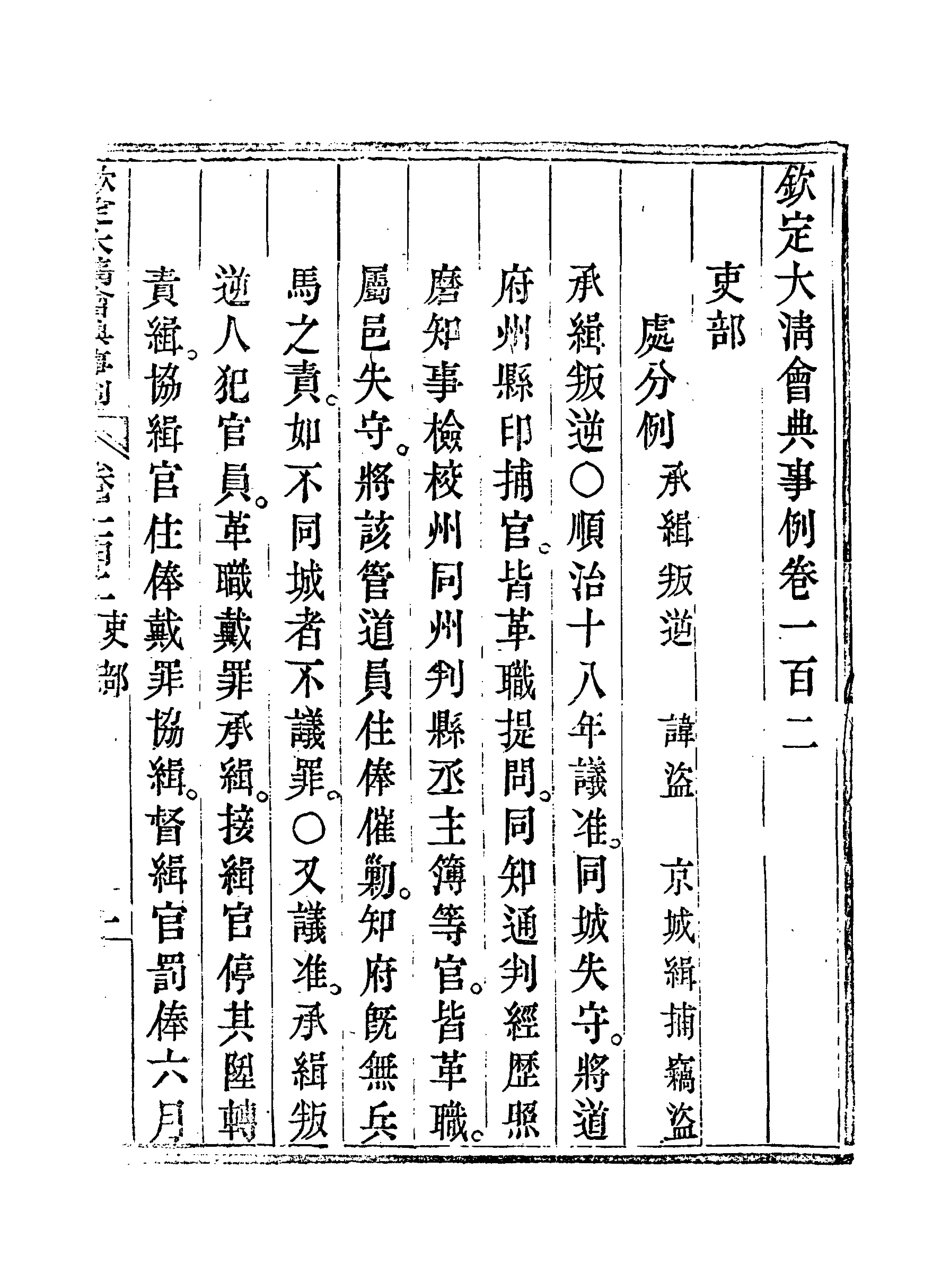 欽定大淸會典事例卷一百二
吏部
處分例 承緝叛逆 諱盜 京城緝捕竊盜
承緝叛逆○順治十八年議准。同城失守。將道
府州縣印捕官。皆革職提問。同知通判經歷照
磨知事檢校州同州判縣丞主簿等官。皆革職。
屬邑失守。將該管道員住俸催勦。知府旣無兵
馬之責。如不同城者不議罪。○又議准。承緝叛
逆人犯官員。革職戴罪承緝。接緝官停其陞轉
責緝。協緝官住俸戴罪協緝。督緝官罰俸六月
欽定大淸會典事例 卷一百二 吏部 一